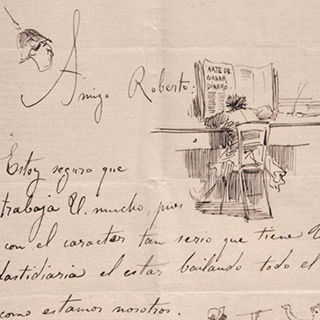 ARTE DE
GANAR
DINERO
Amigo Roberto:
Estoy seguro que
trabaja U. mucho, pues
con el caracter tan serio que tiene U
fastidiaria el estar bailando todo el
como estamos nosotros.